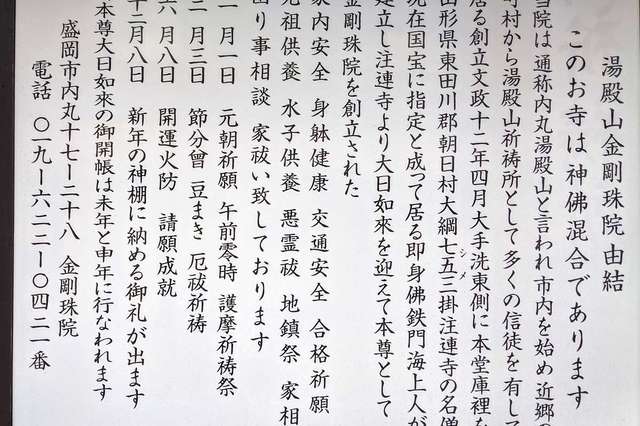 湯殿山金剛珠院由結
このお寺は神佛混合であります
当院は通称内丸湯殿山と言われ市内を始め近郷の
町村から湯殿山祈祷所として多くの信徒を有して
居る創立文政十二年四月大手洗東側に本堂庫裡を
山形県東田川郡朝日村大綱七五三掛注連寺の名僧
シメ
現在国宝に指定と成って居る即身佛鉄門海上人が
建立し注連寺より大日如來を迎えて本尊として
金剛珠院を創立された
家内安全 身躰健康 交通安全 合格祈願
先祖供養 水子供養 悪霊祓 地鎮祭 家相
困り事相談 家祓い致しております
一月一日 元朝祈願 午前零時 護摩祈祷祭
二月三日 節分會 豆まき 厄祓祈祷
六月八日 開運火防 請願成就
十二月八日 新年の神棚に納める御礼が出ます
本尊大日如來の御開帳は未年と申年に行なわれます
盛岡市内丸十七ー二十八 金剛珠院
電話 〇一九ー六二二ー〇四二一番